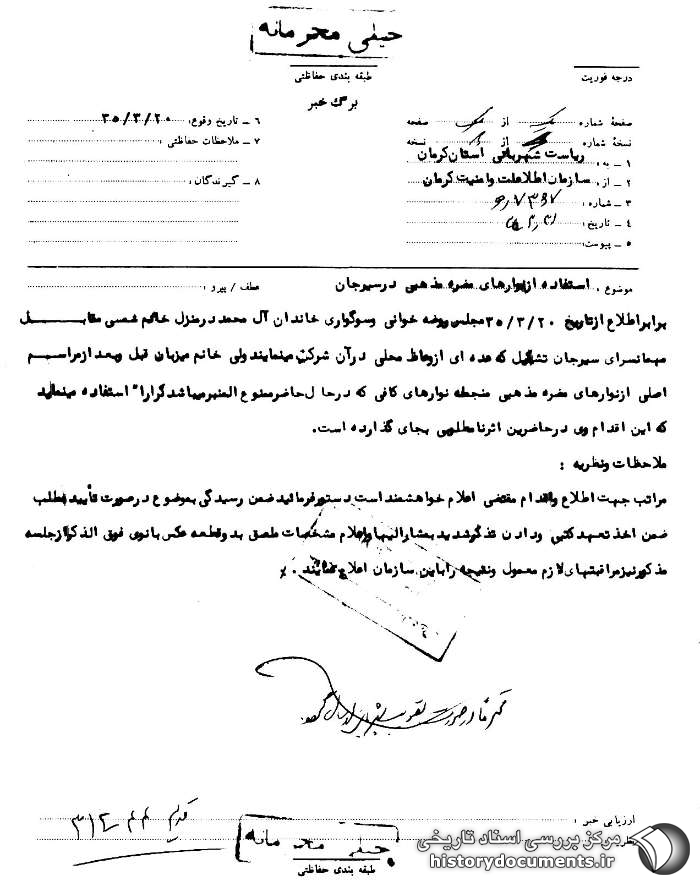 خیلی محرمانه
طبقه بندی حفاظتی
درجه فوریت
برگ خبر
صفحهٔ شماره یک از یک صفحه
نسخهٔ شماره از نسخه
۱ – به : ریاست شهربانی استان کرمان
۲ – از : سازمان اطلاعات و امنیت کرمان
۳ – شماره :
۴ – تاریخ :
۵ – پیوست :
۶ – تاریخ وقوع: ۳۵/۳/۲۰
۷ – ملاحظات حفاظتی :
۸ – گیرندگان :
موضوع : استفاده از نوارهای مضره مذهبی در سیرجان
عطف / پیرو :
برابر اطلاع از تاریخ ۳۵/۳/۲۰ مجلس روضه خوانی وسوگواری خاندان آل محمد در منزل خانم شمسی مقابـــل
میهمانسرای سیرجان تشکیل که عده ای از وعاظ محلی در آن شرکت مینمایند ولی خانم میزبان قبل وبعد از مراسم
اصلی از نوارهای مضره مذهبی منجمله نوارهای کافی که در حال حاضر ممنوع المنبر میباشد کرارا" استفاده مینماید
که این اقدام وی در حاضرین اثر نامطلوبی بجای گذارده است.
ملاحظات ونظریه :
مراتب جهت اطلاع واقدام مقتضی اعلام خواهشمند است دستور فرمائید ضمن رسیدگی بموضوع در صورت تأیید مطلب
ضمن اخذ تعهد کتبی ودادن تذکر شدید بمشارالیها واعلام مشخصات ملصق بدوقطعه عکس بانوی فوق الذکر از جلسه
مذکور نیز مراقبتهای لازم معمول ونتیجه را باین سازمان اعلام نمایند .
ارزیابی خبر :
خیلی محرمانه
طبقه بندی حفاظتی
مرکز بررسی اسناد تاریخی
historydocuments.ir